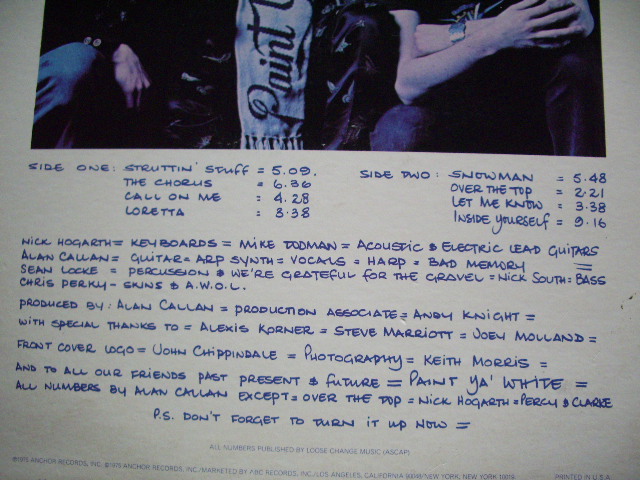 Paint
SIDE ONE: STRUTTIN' STUFF = 5.09.
THE CHORUS = 6.36
CALL ON ME = 4.28
LORETTA = 3.38
SIDE TWO: SNOWMAN = 5.48
OVER THE TOP = 2.21
LET ME KNOW = 3.38
INSIDE YOURSELF = 9.16
NICK HOGARTH = KEYBOARDS = MIKE TODMAN = ACOUSTIC & ELECTRIC LEAD GUITARS
ALAN CALLAN = GUITAR = ARP SYNTH = VOCALS = HARP = BAD MEMORY =
SEAN LOCKE = PERCUSSION & WE'RE GRATEFUL FOR THE GRAVEL = NICK SOUTH = BASS
CHRIS PERKY - SKINS & A.W.O.L.
PRODUCED BY: ALAN CALLAN = PRODUCTION ASSOCIATE = ANDY KNIGHT =
WITH SPECIAL THANKS TO = ALEXIS KORNER = STEVE MARRIOTT = JOEY MOLLAND =
FRONT COVER LOGO = JOHN CHIPPINDALE = PHOTOGRAPHY = KEITH MORRIS =
AND TO ALL OUR FRIENDS PAST PRESENT & FUTURE = PAINT YA' WHITE =
ALL NUMBERS BY ALAN CALLAN EXCEPT = OVER THE TOP = NICK HOGARTH = PERCY & CLARKE
P.S. DON'T FORGET TO TURN IT UP NOW =
ALL NUMBERS PUBLISHED BY LOOSE CHANGE MUSIC (ASCAP)
©1975 ANCHOR RECORDS, INC. ℗1975 ANCHOR RECORDS, INC./MARKETED BY ABC RECORDS, INC./LOS ANGELES, CALIFORNIA 90048/NEW YORK, NEW YORK 10019 PRINTED IN U.S.A.